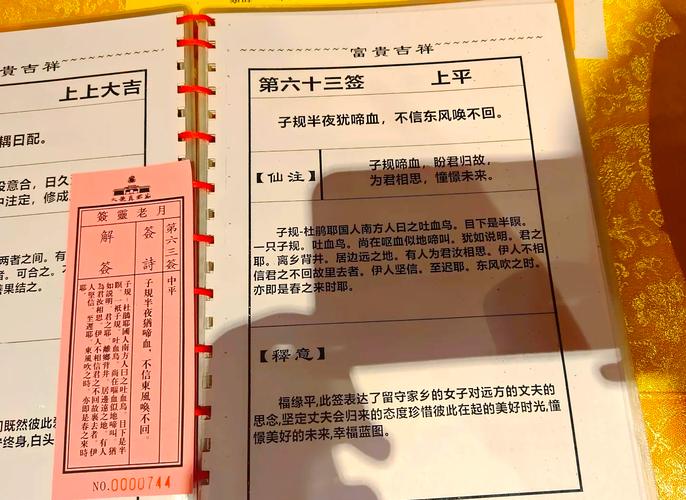 貴吉祥
上上大吉
耦曰配。
投意合，日久
中注定，修成
两者之间。有
者。可合之。不
善果结之。
们既然彼此
守终身,白头
富貴吉祥
第六十三签 上平
子规半夜犹啼血，不信东风唤不回。
【仙注】
子规啼血，盼君归故，
为君相思，憧憬未来。
子规-杜鹃耶国人南方人曰之吐血鸟。目下是半瞑。
一只子规。吐血鸟。尚在呕血似地啼叫。犹如说明。君之
耶。离乡背井。居边远之地。有人为君汝相思。伊人不相
信君之不回故里去者。伊人坚信。至迟耶。东风吹之时。
亦即是春之来时耶
【釋意】
福缘平,此签表达了留守家乡的女子对远方的丈夫的
思念,坚定丈夫会归来的态度珍惜彼此在起的美好时光,憧
憬美好的未来,幸福蓝图。
月老靈簽
第六三簽 中平
簽詩
子規半夜猶啼血，不信東風喚不回。
解簽
子規-杜鵑耶國人南方人曰之吐血鳥。目下是半
瞑。一衹子規。吐血鳥。尚在嘔血似地啼叫。猶
如說明。君之耶。離鄉背井。居邊遠之地。有人
為君汝相思。伊人不相信君之不回故裏去者。伊
人堅信。至遲耶。東風吹之時。亦即是春之來時
耶。
NO.0000744